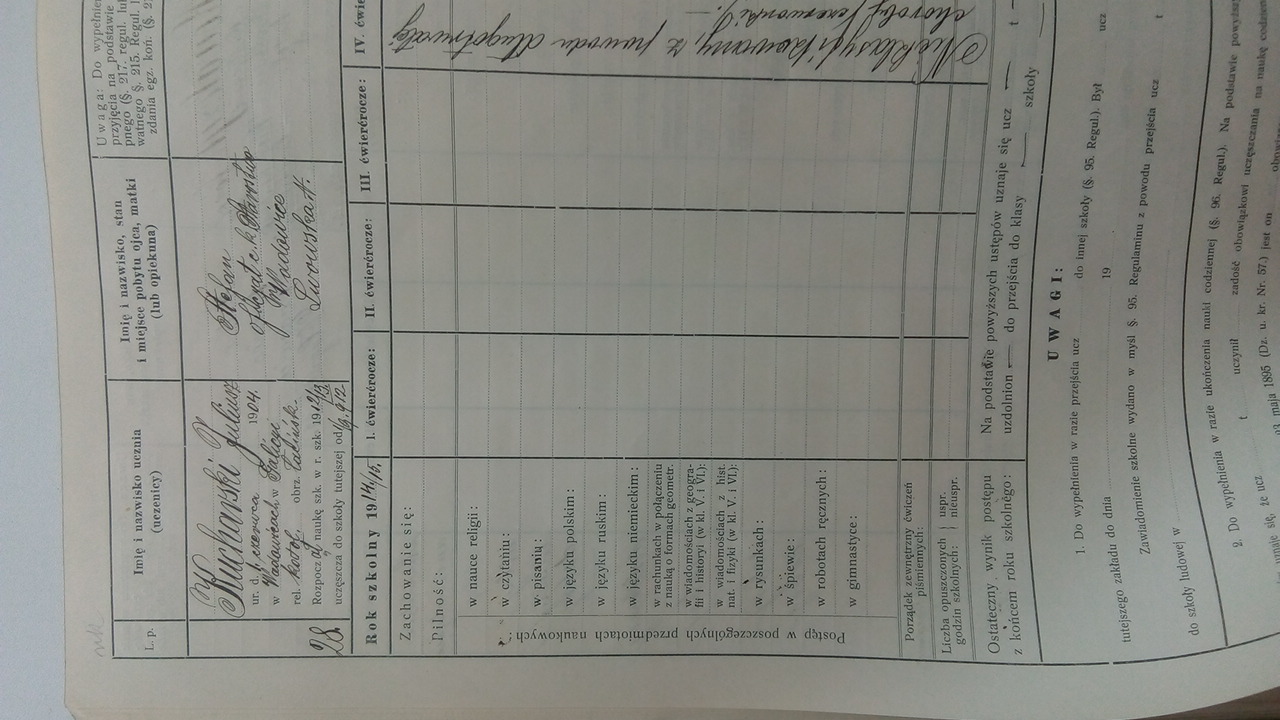 L. p.
Imię i nazwisko ucznia
(uczenicy)
Imię i nazwisko, stan
i miejsce pobytu ojca, matki
(lub opiekuna)
Uwaga: Do wypełnien
przyjęcia na podstawie
pnego (§. 217. regul. lub
watnego §. 215. Regul. l
zdania egz. koń. (§. 2
28
Kucharski Juljusz
ur. d. 1 czerwca 1904.
w Wadowicach, w Galicyi
rel. katol. obrz. łacińsk.
Rozpoczął naukę szk. w r. szk. 1912/13
uczęszcza do szkoły tutejszej od 1/9 912
Stefan
Wadowice
Lwowska
Rok szkolny 1914/15.
I. ćwierćrocze:
II. ćwierćrocze:
III. ćwierćrocze:
IV. ćwie
Zachowanie się:
Pilność:
Postęp w poszczególnych przedmiotach naukowych:
w nauce religii:
w czytaniu:
w pisaniu:
w języku polskim:
w języku ruskim:
w języku niemieckim:
w rachunkach w połączeniu
z nauką o formach geometr.
w wiadomościach z geogra-
fii i historyi (w kl. V. i VI.):
w wiadomościach z hist.
nat. i fizyki (w kl. V. i VI.):
w rysunkach:
w śpiewie:
w robotach ręcznych:
w gimnastyce:
Nieklasyfikowany z powodu długotrwałej
choroby
Porządek zewnętrzny ćwiczeń
piśmiennych:
Liczba opuszczonych } uspr.
godzin szkolnych: } nieuspr.
Ostateczny wynik postępu
z końcem roku szkolnego:
Na podstawie powyższych ustępów uznaje się ucz — t —
uzdolnion — do przejścia do klasy — szkoły
UWAGI:
1. Do wypełnienia w razie przejścia ucz do innej szkoły (§. 95. Regul.). Był ucz
tutejszego zakładu do dnia 19
Zawiadomienie szkolne wydano w myśl §. 95. Regulaminu z powodu przejścia ucz t
do szkoły ludowej w
2. Do wypełnienia w razie ukończenia nauki codziennej (§. 96. Regul.). Na podstawie powyższ
t uczynił zadość obowiązkowi uczęszczania na naukę codzien
się, że ucz maja 1895 (Dz. u. kr. Nr. 57.) jest on